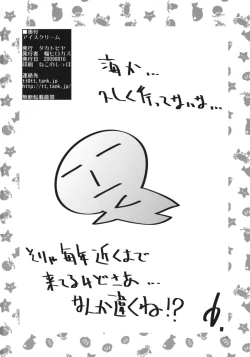 ■奥付
アイスクリーム
発行 タカトビヤ
発行者 鳩ヒロカズ
発行日 20090816
印刷 ねこのしっぽ
連絡先
tt@tt.tank.jp
http://tt.tank.jp/
無断転載厳禁
海か…
久しく行ってないな…
そりゃ毎年近くまで
来てるけどさあ…
なんか違くね!?